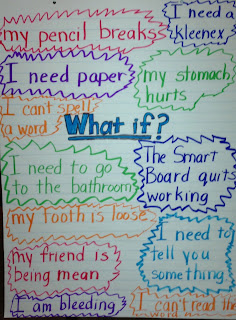 my pencil breaks
I need a
kleenex
I need paper
my stomach
hurts
I can't spell
a word
What if?
I need to go
to the bathroom
The Smart
Board quits
working
my tooth is loose
I need to
tell you
something
my friend is
being mean
I am bleeding
I can't read the
word